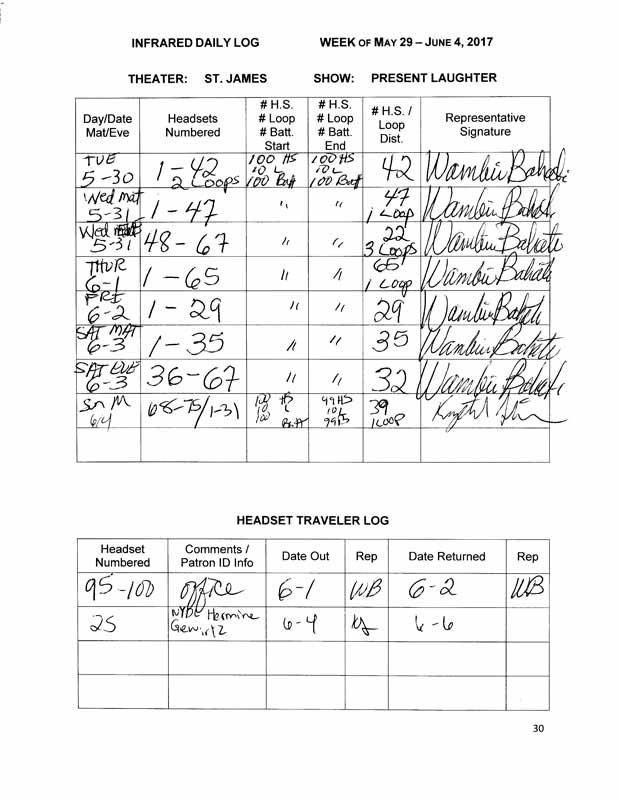 INFRARED DAILY LOG WEEK OF MAY 29 – JUNE 4, 2017
THEATER: ST. JAMES SHOW: PRESENT LAUGHTER
Day/Date Mat/Eve Headsets Numbered # H.S. # Loop # Batt. Start # H.S. # Loop # Batt. End # H.S. / Loop Dist. Representative Signature
TUE 5-30 1-42 2 Loops 100 HS 10 L 100 Batt 100 HS 10 L 100 Batt 42 Wambui Bahati
Wed mat 5-31 1-47 " " 47 1 Loop Wambui Bahati
Wed 5-31 48-67 " " 22 3 Loops Wambui Bahati
THUR 6-1 1-65 " " 65 1 Loop Wambui Bahati
FRI 6-2 1-29 " " 29 Wambui Bahati
SAT MAT 6-3 1-35 " " 35 Wambui Bahati
SAT EVE 6-3 36-67 " " 32 Wambui Bahati
Sn M 6/4 68-75/1-31 100 HS 10 L 100 Batt 99HS 10L 99 39 1 LOOP
HEADSET TRAVELER LOG
Headset Numbered Comments / Patron ID Info Date Out Rep Date Returned Rep
95-100 office 6-1 WB 6-2 WB
25 NYDL Hermine Gewirtz 6-4 KJ 6-6
30